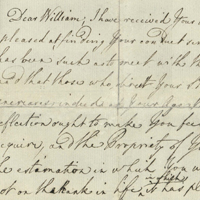 Dear William, I have received Your
pleased at finding Your conduct
has been such as to meet with the
and that those who direct Your St
increases
reflection ought to make You fee
acquire, and the Propriety of Yo
the estamation in which You a
not on the Rank in life, it has pl